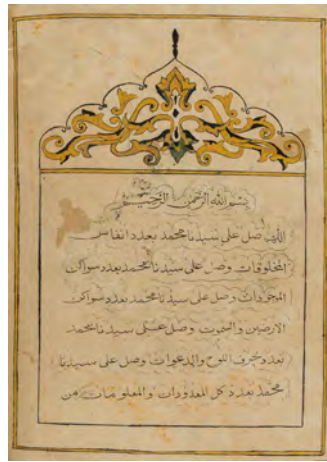 بسم الله الرحمن الرحيم
اللهم صل على سيدنا محمد بعدد انفاس
المخلوقات وصل على سيدنا محمد بعدد سواكن
الموجودات وصل على سيدنا محمد بعدد سواكن
الارضين والسموت وصل على سيدنا محمد
بعدد حروف اللوح والدعوات وصل على سيدنا
محمد بعدد كل المعدودات والمعلومات من